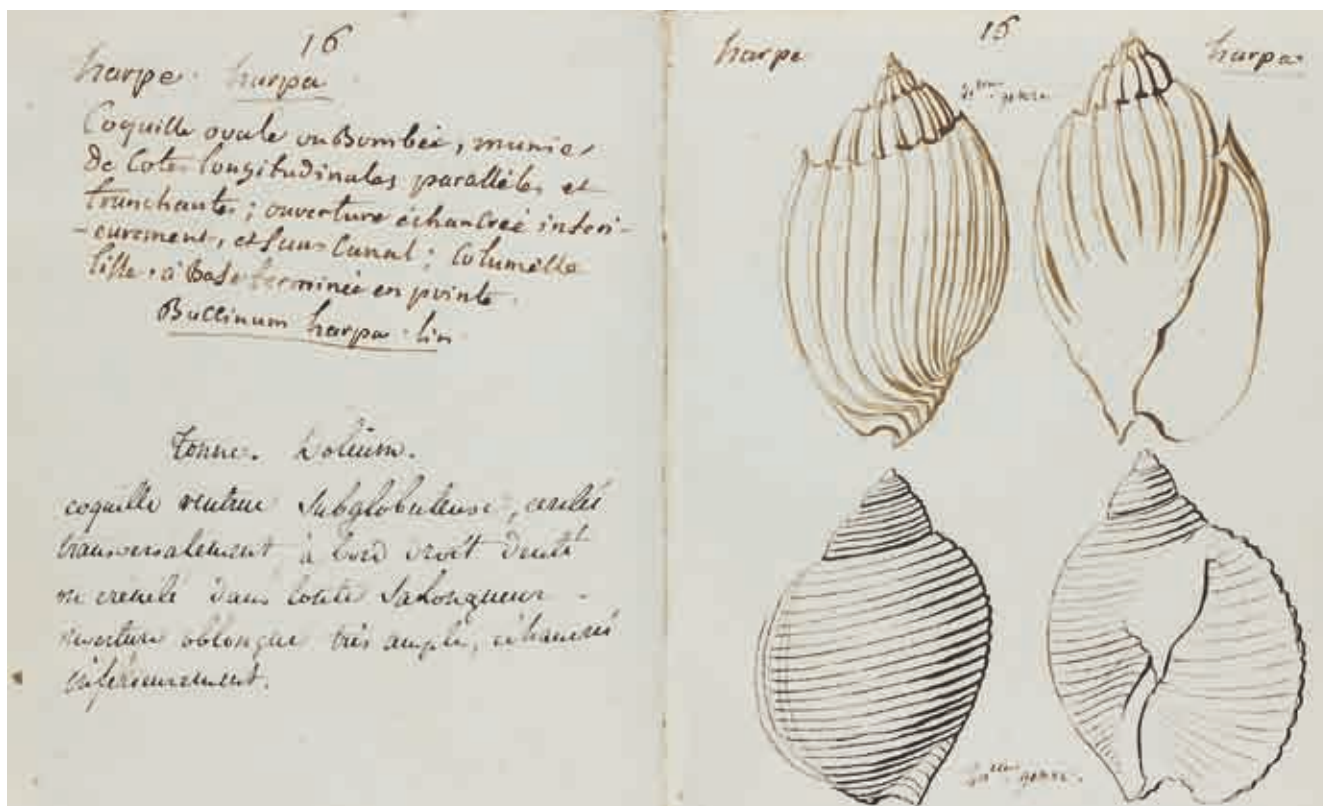 16
harpe. harpa
Coquille ovale ou Bombée, munie
de Cotes longitudinales parallèles et
tranchantes; ouverture échancrée inferi-
-eurement, et sans Canal; Columelle
lisse. à Base terminée en pointe.
Buccinum harpa. lin
Tonne. Dolium.
coquille ventrue Subglobuleuse, cerclée
transversalement, à bord droit denté
ou crénelé dans toute Salongueur.
ouverture oblongue très ample, échancrée
inférieurement.
16
harpe
harpa.
genre
genre.